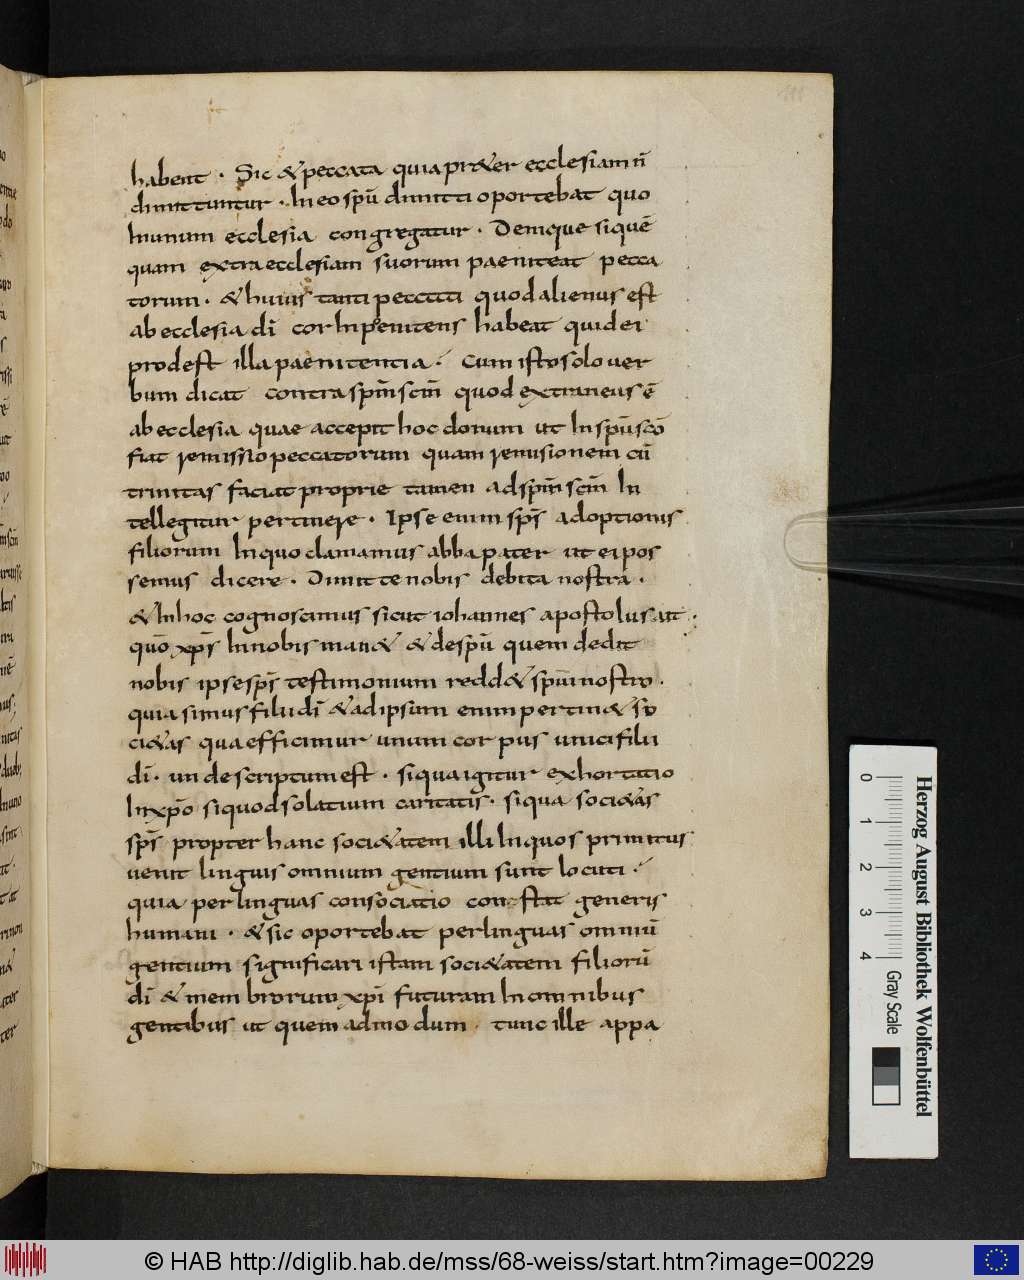 111
habent · Sic & peccata quia pr&er ecclesiam n̄
dimittuntur · In eo spū dimitti oportebat quo
In unum ecclesia congregatur · Denique si quē
quam extra ecclesiam suorum paeniteat pecca
torum · & huius tanti peccati quod alienus est
ab ecclesia dī cor Inpenitens habeat quid ei
prodest illa paenitentia · Cum isto solo ver
bum dicat contra spm̄ scm̄ quod extraneus ē
ab ecclesia quae accepit hoc donum ut In spū scō
fiat remissio peccatorum quam remissionem cū
trinitas faciat proprie tamen ad spm̄ scm̄ In
tellegitur pertinere · Ipse enim sps̄ adoptionis
filiorum In quo clamamus abba pater ut ei pos
semus dicere · Dimitte nobis debita nostra ·
& In hoc cognoscimus sicut iohannes apostolus ait ·
quō xps̄ In nobis man& & de spū quem dedit
nobis ipse sps̄ testimonium redd& spūi nostro ·
quia simus filii dī & ad ipsum enim pertin& so
ci&as qua efficimur unum corpus unici filii
dī · unde scriptum est · si qua igitur exhortatio
In xpō si quod solatium caritatis · si qua soci&as
sps̄ propter hanc soci&atem illi In quos primitus
venit linguis omnium gentium sunt locuti ·
quia per linguas consociatio constat generis
humani · & sic oportebat per linguas omniū
gentium significari istam soci&atem filiorū
dī & membrorum xpī futuram In omnibus
gentibus ut quem ad modum · tunc ille appa
0 1 2 3 4
Herzog August Bibliothek Wolfenbüttel
Gray Scale
© HAB http://diglib.hab.de/mss/68-weiss/start.htm?image=00229